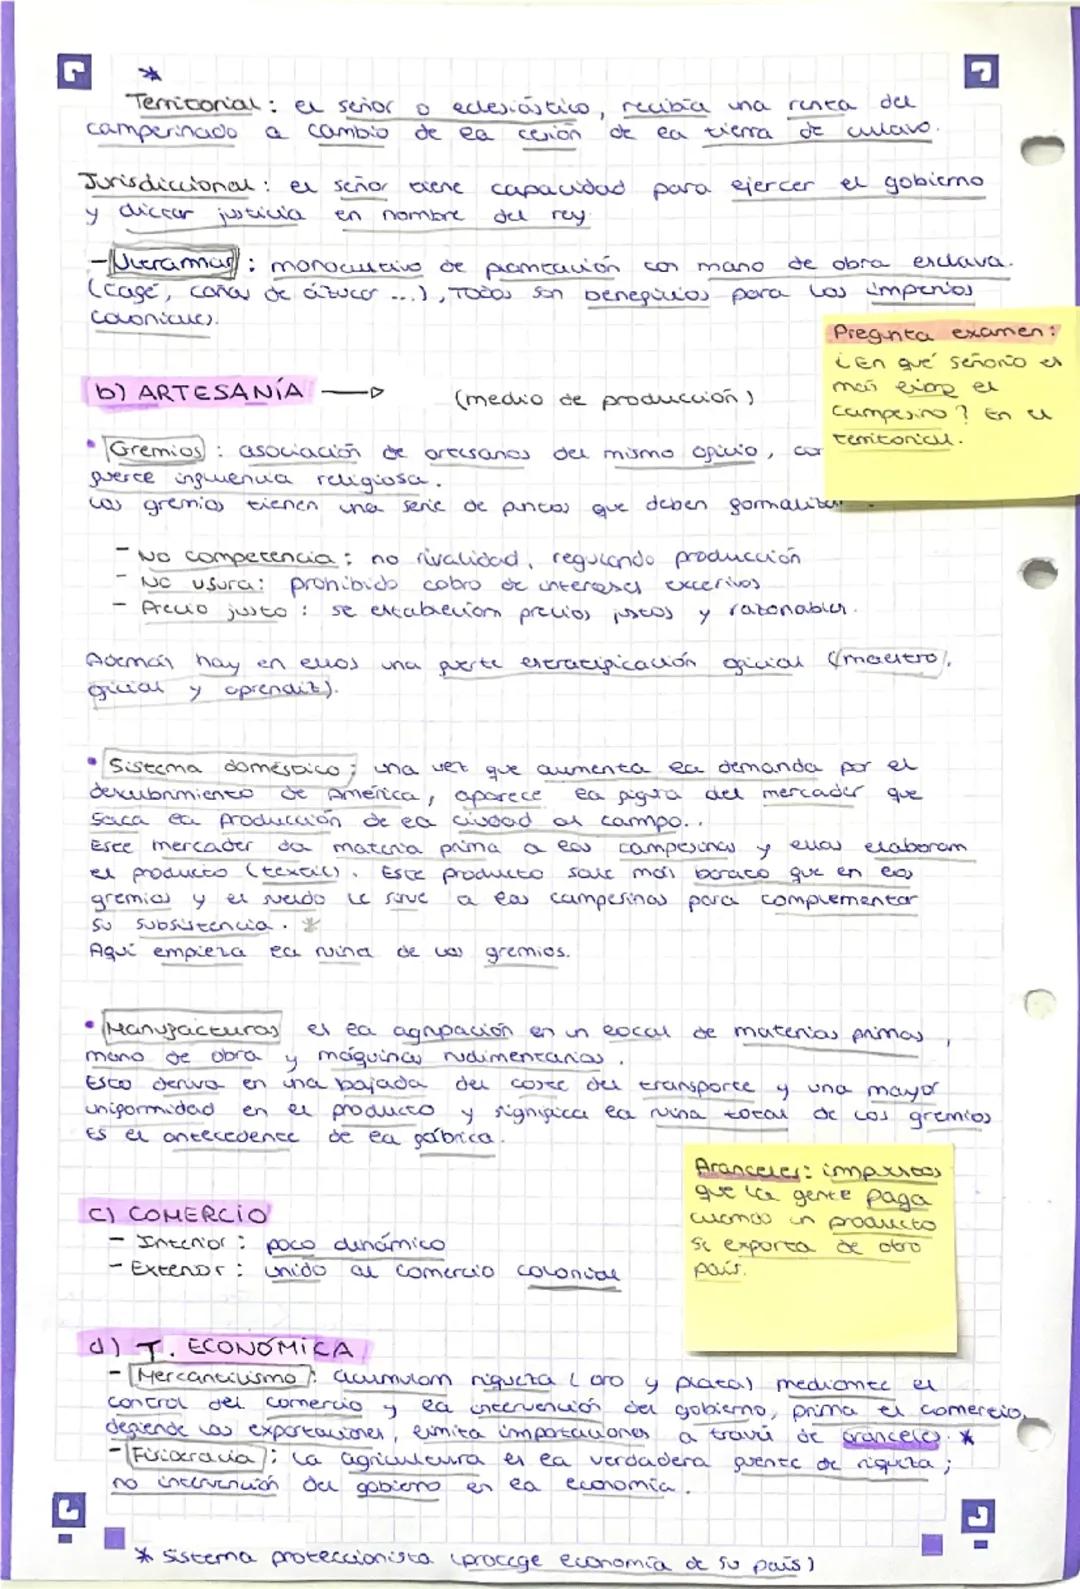 *
Territorial: el señor o eclesiástico, recibía una renta del
campesinado a cambio de la cesión de la tierra de cultivo.
Jurisdiccional: el señor tiene capacidad para ejercer el gobierno
y dictar justicia en nombre del rey.
- Ultramar: monocultivo de plantación con mano de obra esclava.
(café, cañas de azúcar ...), Todos son beneficios para los imperios
coloniales.
Pregunta examen:
¿En qué señorío es
más libre el
campesino? En el
territorial.
b) ARTESANÍA → (medio de producción)
• Gremios: asociación de artesanos del mismo oficio, con
fuerte influencia religiosa.
Los gremios tienen una serie de puntos que deben formalizar
- No competencia: no rivalidad, regulando producción
- No usura: prohibido cobro de intereses excesivos
- Precio justo: se establecían precios justos y razonables.
Además hay en ellos una fuerte estratificación oficial (maestro,
oficial y aprendiz).
• Sistema doméstico; una vez que aumenta la demanda por el
descubrimiento de América, aparece la figura del mercader que
saca la producción de la ciudad al campo..
Este mercader da materia prima a las campesinas y ellas elaboran
el producto (textil). Este producto sale más barato que en los
gremios y el sueldo le sirve a las campesinas para complementar
su subsistencia. *
Aquí empieza la ruina de los gremios.
• Manufacturas es la agrupación en un local de materias primas,
mano de obra y máquinas rudimentarias.
Esto deriva en una bajada del coste del transporte y una mayor
uniformidad en el producto y significa la ruina total de los gremios
Es el antecedente de la fábrica.
Aranceles: impuestos
que la gente paga
cuando un producto
se exporta de otro
país.
c) COMERCIO
- Interior: poco dinámico
- Exterior: unido al comercio colonial
d) T. ECONÓMICA
- Mercantilismo: acumulam riqueza (oro y plata) mediante el
control del comercio y la intervención del gobierno, prima el comercio,
defiende las exportaciones, limita importaciones a través de aranceles. *
- Fisiocracia: La agricultura es la verdadera fuente de riqueza;
no intervención del gobierno en la economía.
* Sistema proteccionista (protege economía de su país)